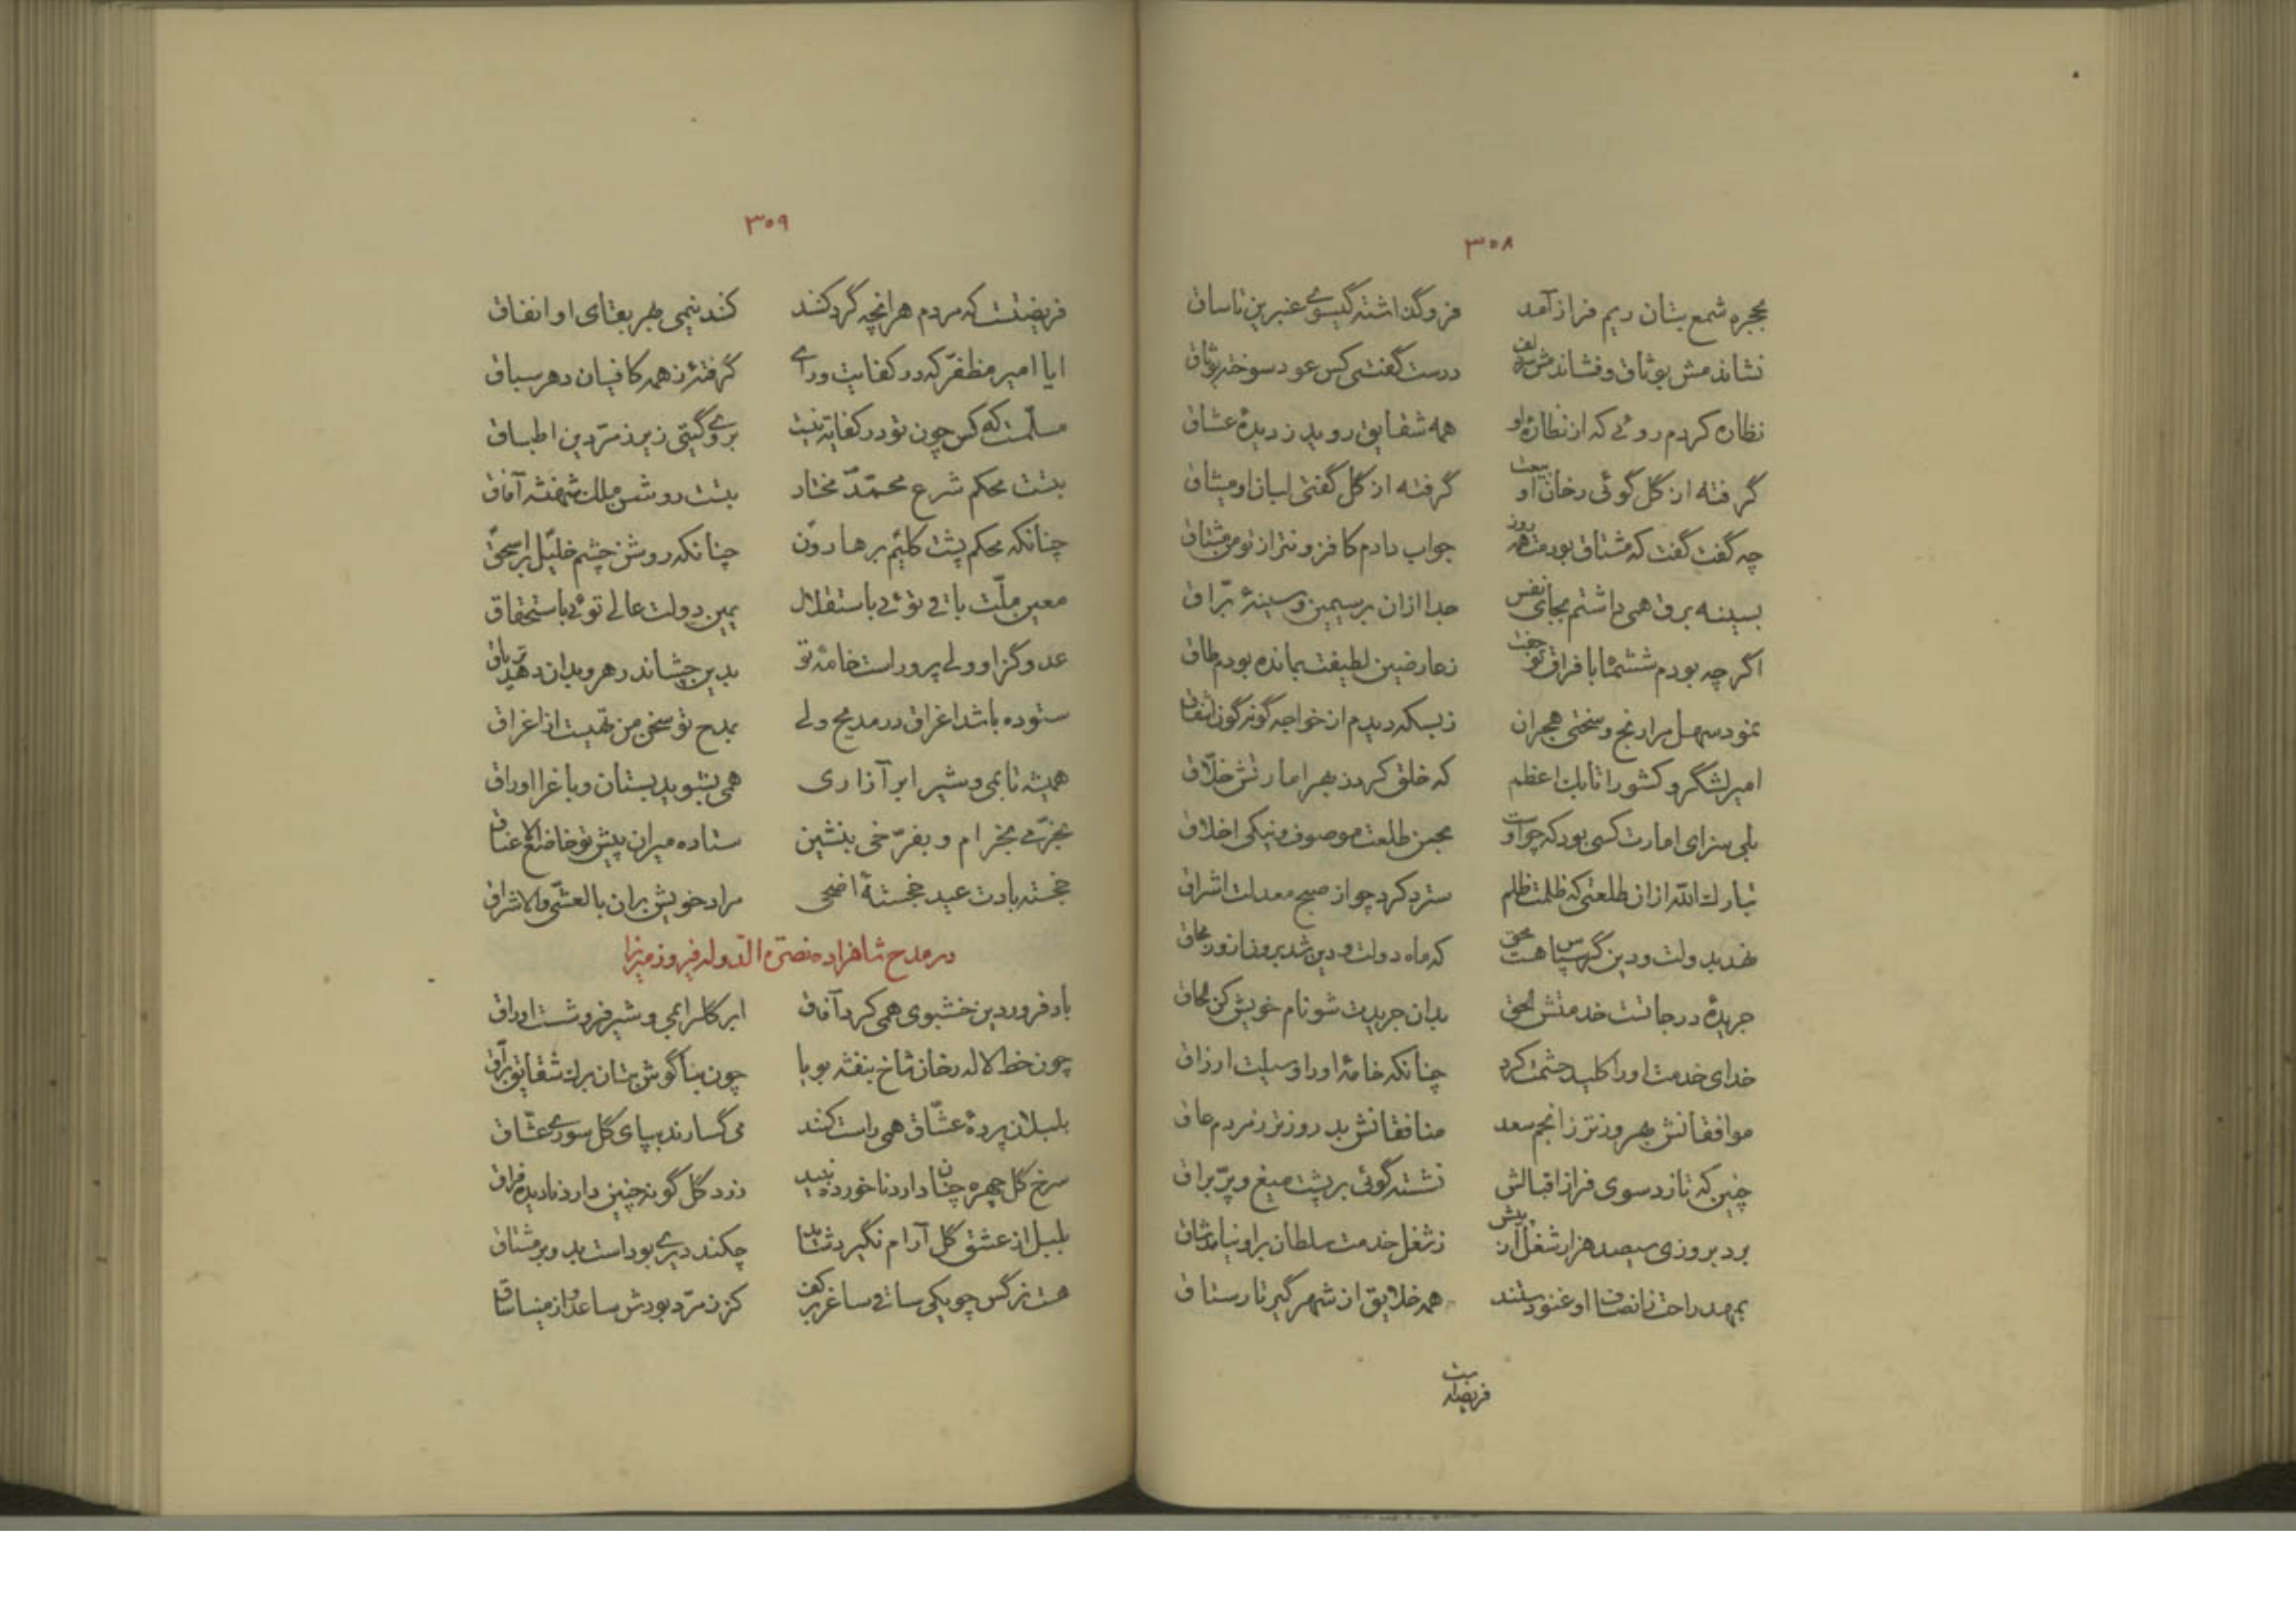 ۳۰۸
بحجره شمع بتان دیم فراز آمد فروگذاشته گیسوی عنبرین تا ساق
نشاندمش بوثاق و فشاندمش زلف درست گفتی کس عود سوخته بوثاق
نظاره کردم روئی که از نظارهٔ او همه شقایق روید ز دیدهٔ عشاق
گرفته از گل گوئی رخان او بیعت گرفته از گل گفتی لبان او میثاق
چه گفت گفت که مشتاق بودمت همه روز جواب دادم کافزونتر از تو من مشتاق
بسینه برق همی داشتم بجای نفس جدا از آن بر سیمین و سینهٔ برّاق
اگر چه بودم شش مه با فراق تو جفت ز عارضین لطیفت بمانده بودم طاق
نمود سهل مرا رنج و سختی هجران ز بسکه دیدم از خواجه گونه گون اشفاق
امیر لشگر و کشور اتابک اعظم که خلق کرد ز بهر امارتش خلّاق
بلی سزای امارت کسی بود که چو اوست بحسن طلعت موصوف و نیکی اخلاق
تبارک الله از آن طلعتی که ظلمت ظلم سترد کرد چو از صبح معدلت اشراق
که ماه دولت و دین شد برون از نور محاق
جریدهٔ درجاتست خدمتش الحق بدان جریدت شو نام خویش کن الحاق
خدای خدمت او را کلید حشمت کرد چنانکه خامهٔ او را وسیلت ارزاق
موافقانش بهروزتر ز انجم سعد منافقانش بد روزتر ز مردم عاق
چنین که تازد سوی فراز اقبالش نشسته گوئی بر پشت میغ و پرّ براق
برد بروزی سیصد هزار شغل از پیش ز شغل خدمت سلطان بر او نیاید شاق
بمهد راحت ز انصاف او غنودستند همه خلایق از شهر گیر تا رستاق
فریضه است
۳۰۹
فریضتست که مردم هر آنچه گرد کنند کند نیمی بهر بقای او انفاق
ایا امیر مظفّر که در کفایت و رای گرفتهٔ ز همه کافیان دهر سباق
مسلّمست که کس چون تو در کفایت نیست بروی گیتی زیر زمرّدین اطباق
بتست محکم شرع محمّد مختار بتست روشن ملک شهنشه آفاق
چنانکه محکم پشت کلیم بر هارون چنانکه روشن چشم خلیل بر اسحق
معین ملّت باقی توئی باستقلال یمین دولت عالی توئی باستحقاق
عدوگزا و ولی پرور است خامهٔ تو بدین چشاند زهر و بدان دهد تریاق
ستوده باشد اغراق در مدیح ولی بمدح تو سخن من تهیست از اغراق
همیشه تا بمی و شیر ابر آزاری همی بشوید بستان و باغ را اوراق
بخرّمی بخرام و بفرّخی بنشین ستاده میران پیش تو خاضع الاعناق
خجسته بادت عید خجستهٔ اضحی مراد خویش بران بالعشّی والاشراق
در مدح شاهزاده نصرة الدّوله فیروز میرزا
باد فروردین خشبوی همی کرد آفاق ابر گلرا بمی و شیر فرو شست اوراق
چون خط لاله رخان شاخ بنفشه بویا چون بناگوش بتان برک شقایق برّاق
بلبلان پردهٔ عشّاق همی راست کنند می گسارند بپای گل سوری عشّاق
سرخ گل چهره چنان دارد ناخورده نبید زرد گل گونه چنین دارد نادیده فراق
بلبل از عشق گل آرام نگیرد شاید چکند دیری بوداست بد و بر مشتاق
هست نرگس چو یکی ساقی ساغر بر کف کز زمرّد بودش ساعد و از مینا ساق